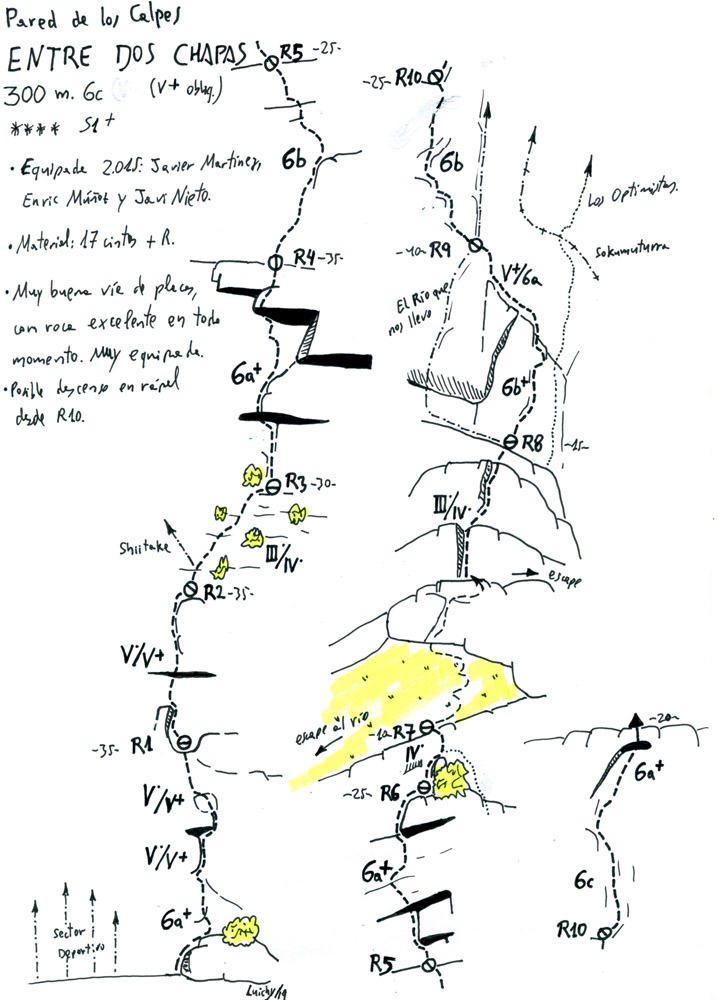 Pared de los Calpes
ENTRE DOS CHAPAS
300 m. 6c (V+ oblig.)
**** S1+
• Equipada 2.015: Javier Martinez,
Enric Múñoz y Javi Nieto.
• Material: 17 cintas + R.
• Muy buena vía de placas,
con roca excelente en todo
momento. Muy equipada.
• Posible descenso en rápel
desde R10.
R5 -25-
6b
R4 -35-
6a+
R3 -30-
III/IV·
Shiitake
R2 -35-
V·/V+
-35- R1
V·/V+
V·/V+
6a+
Sector
Deportivo
Luichy/19
-25- R10
6b
Los Optimistas.
sokamuturra
-40- R9
V+/6a
El Río que
nos llevo
6b+
R8 -15-
III/IV·
escape
escape al río
-10- R7
IV·
-25- R6
6a+
R5
-20-
6a+
6c
R10